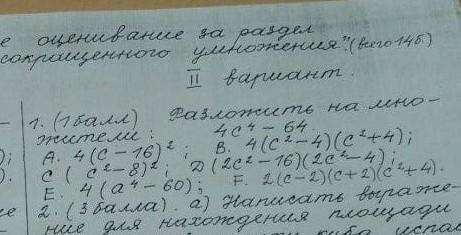 е оценивание за раздел
сокращенного умножения". (всего 14б)
II вариант.
1. (1 балл) Разложить на мно-
жители: 4c⁴ - 64.
A. 4(c - 16)²; B. 4(c² - 4)(c² + 4);
C (c² - 8)²; D (2c² - 16)(2c² - 4);
E. 4(a⁴ - 60); F. 2(c - 2)(c + 2)(c² + 4).
2. (3 балла). а) Написать выраже-
ние для нахождения площади
куба